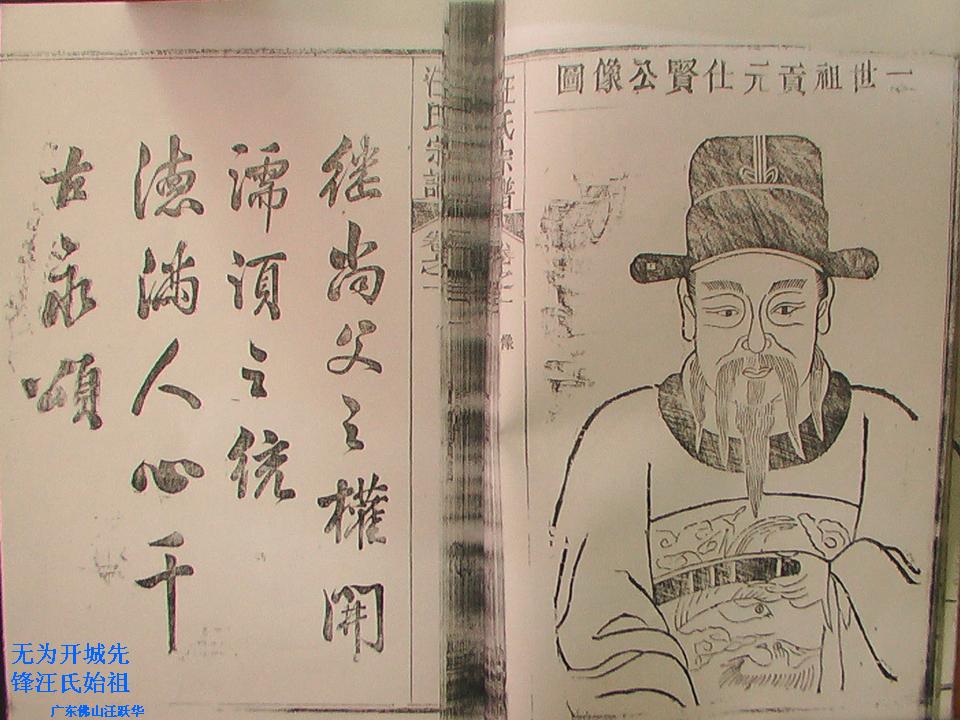 一世祖貢元仕賢公像圖
汪氏宗譜
卷之一
像
汪氏宗譜
卷之一
继尚父之權開
濡須之统
德滿人心千
古永頌
无为开城先
锋汪氏始祖
广东佛山汪跃华